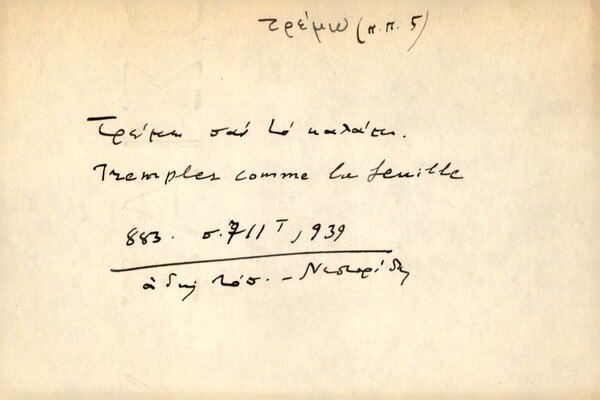 τρέμω (π.π. 5)
Τρέμει σαν το καλάμι.
Trembler comme la feuille
883. σ. 711 I, 939
άδηλ τόπ. – Νεστορίδη